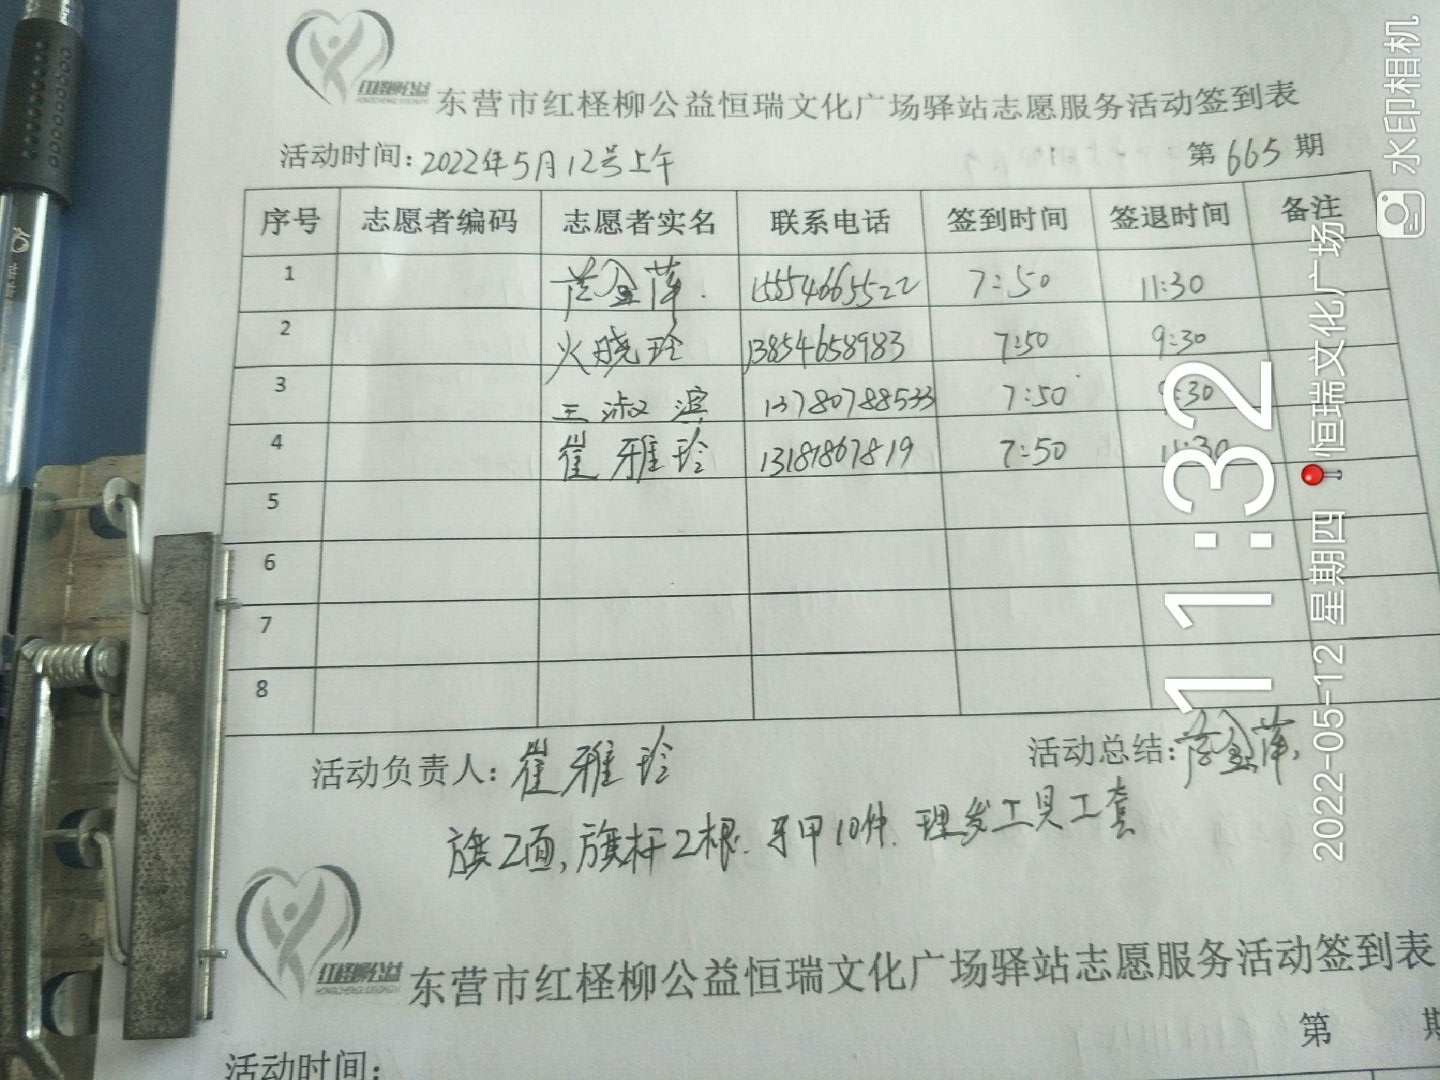 红柽柳公益
东营市红柽柳公益恒瑞文化广场驿站志愿服务活动签到表
活动时间: 2022年5月12号上午 第 665 期
序号 志愿者编码 志愿者实名 联系电话 签到时间 签退时间 备注
1 金萍 15554665522 7:50 11:30
2 火晓玲 13854658983 7:50 9:30
3 王淑滨 13780788533 7:50 9:30
4 崔雅玲 13181867819 7:50 11:30
5
6
7
8
活动负责人: 崔雅玲 活动总结: 金萍
旗2面, 旗杆2根. 马甲10件. 理发工具1套
红柽柳公益
HONGCHENGLIUGONGYI
东营市红柽柳公益恒瑞文化广场驿站志愿服务活动签到表
第 期
活动时间:
11:32
2022-05-12 星期四 恒瑞文化广场
水印相机